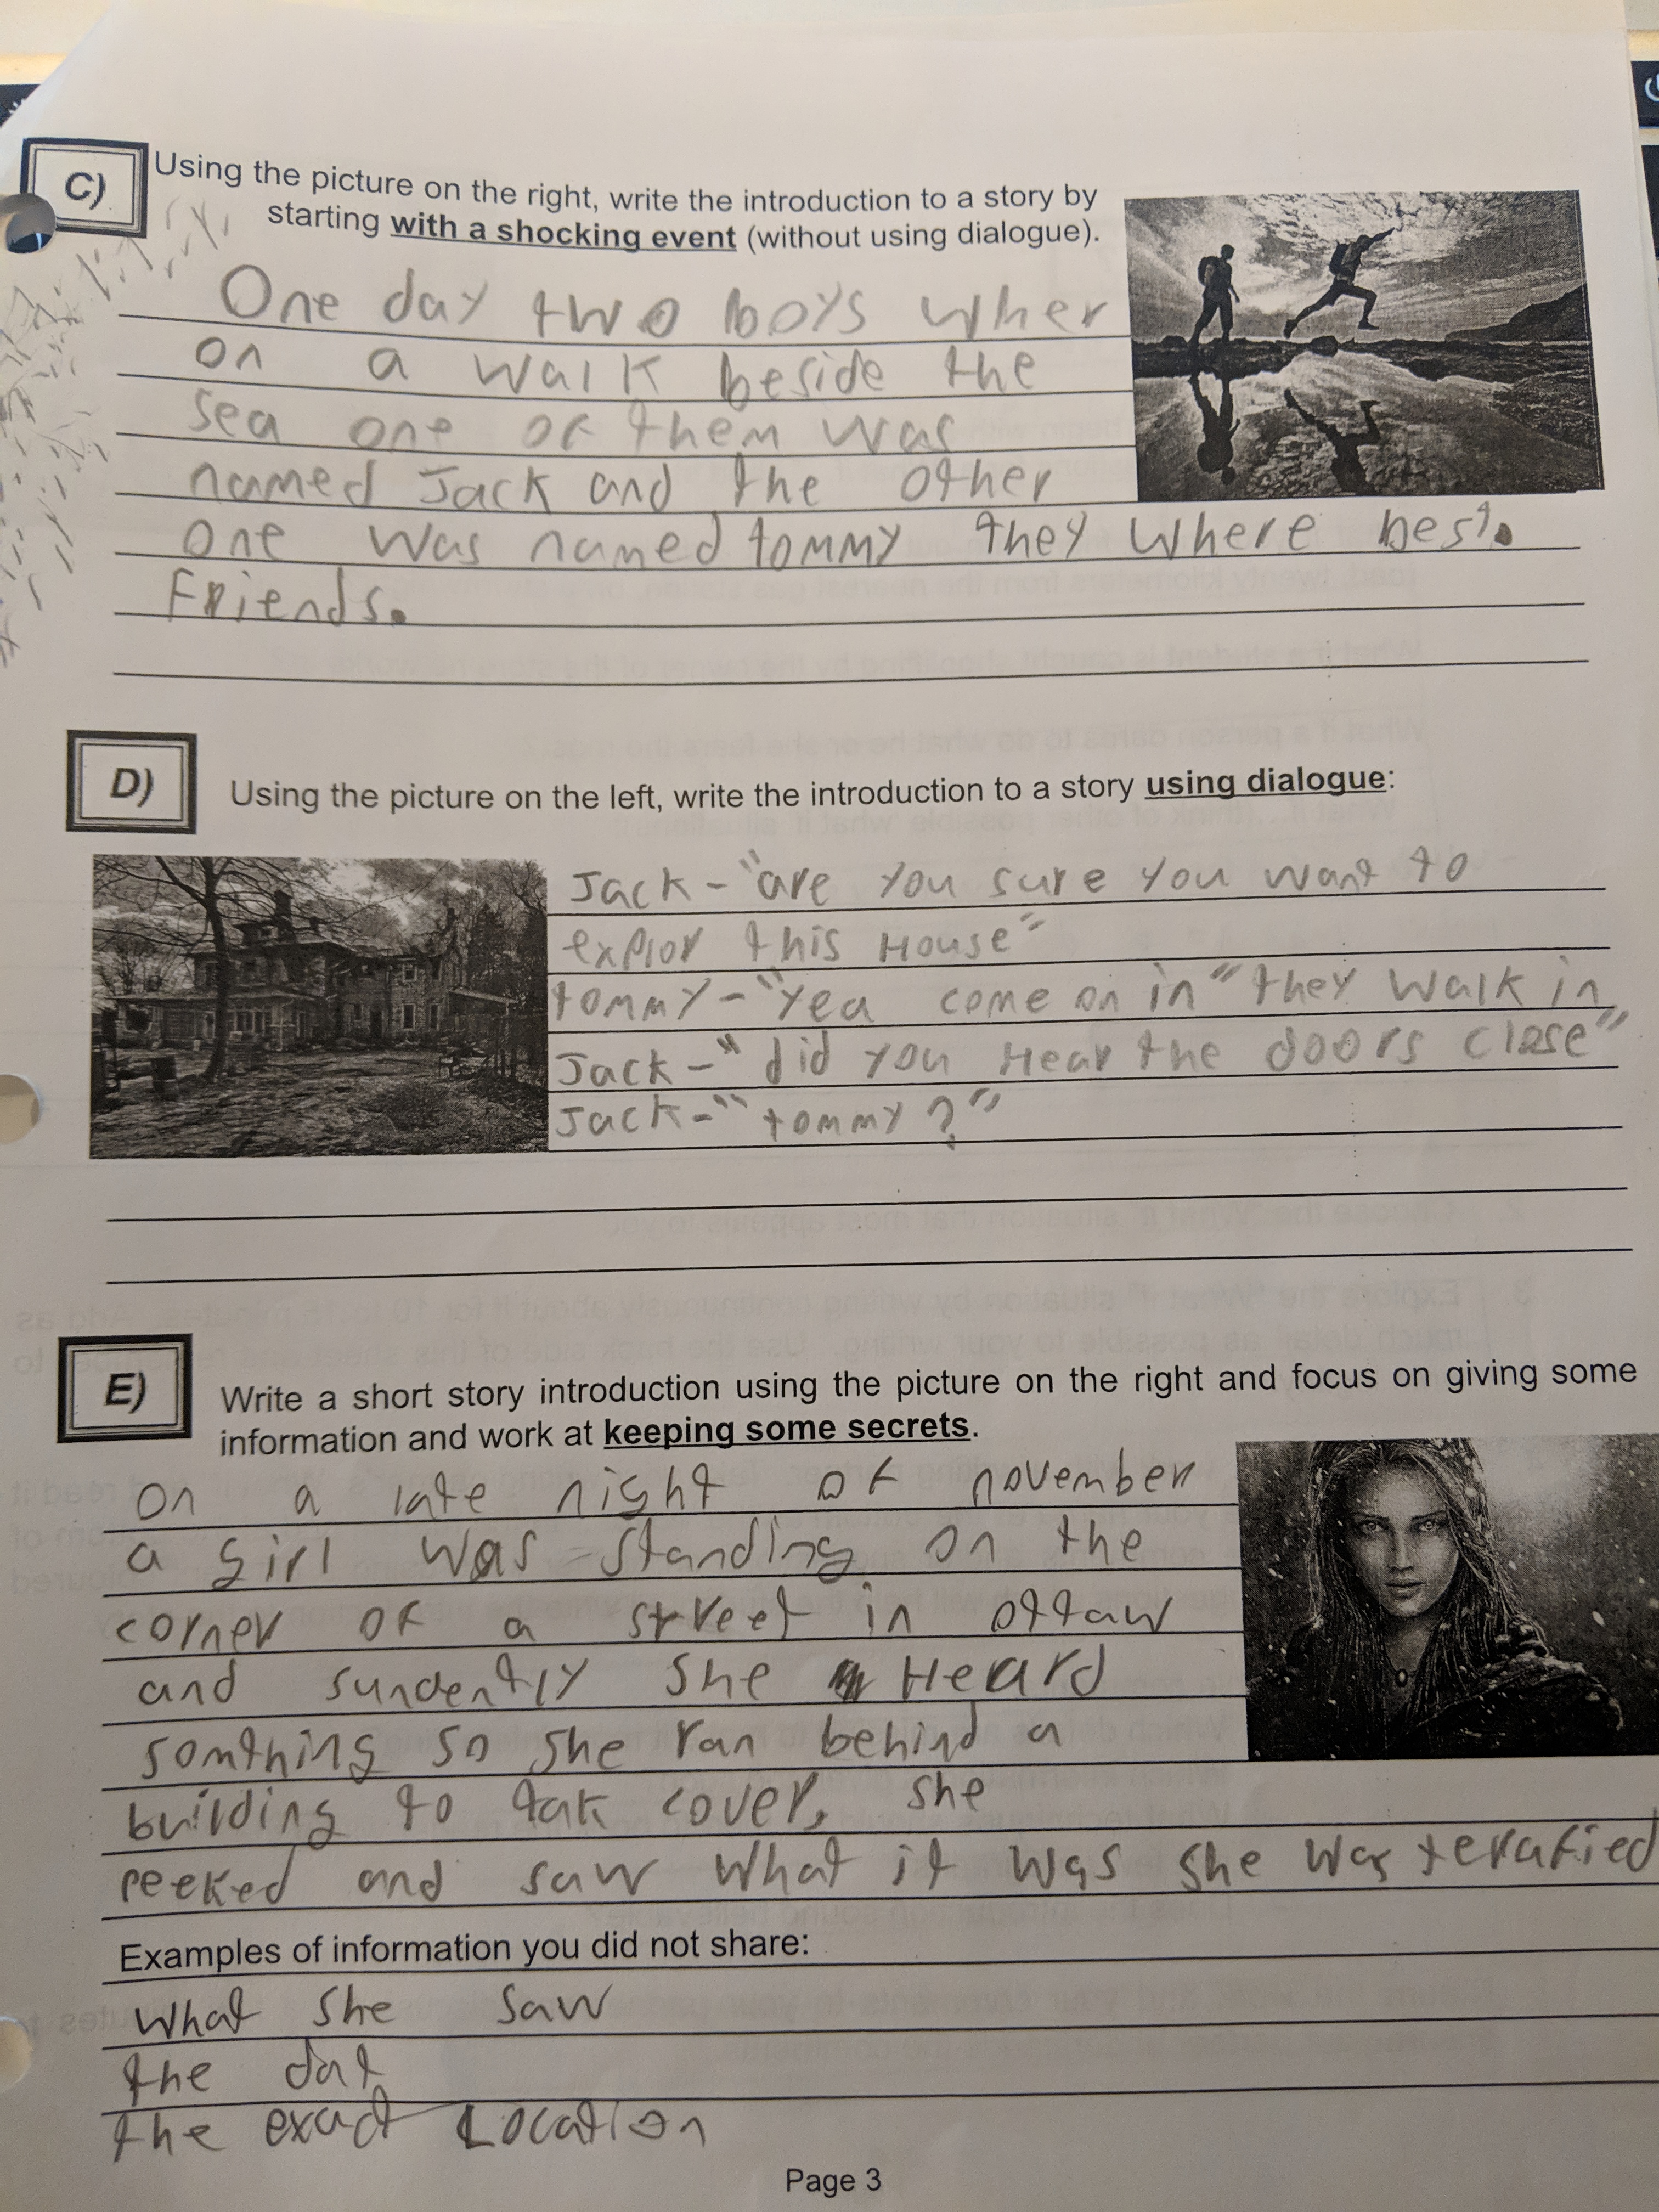 C)
Using the picture on the right, write the introduction to a story by
starting with a shocking event (without using dialogue).
One day two boys wher
on a walk beside the
sea one of them was
named Jack and the other
one was named tommy they where best.
Friends.
D)
Using the picture on the left, write the introduction to a story using dialogue:
Jack - "are you sure you want to
explor this House"
tommy - "yea come on in" they walk in
Jack - " did you Hear the doors close"
Jack - " tommy ? "
E)
Write a short story introduction using the picture on the right and focus on giving some
information and work at keeping some secrets.
on a late night of november
a girl was standing on the
corner of a street in ottaw
and sundently she Heard
somthing so she ran behind a
building to tak cover, she
peeked and saw what it was she was terafied
Examples of information you did not share:
what she saw
the dat
the exact Location
Page 3